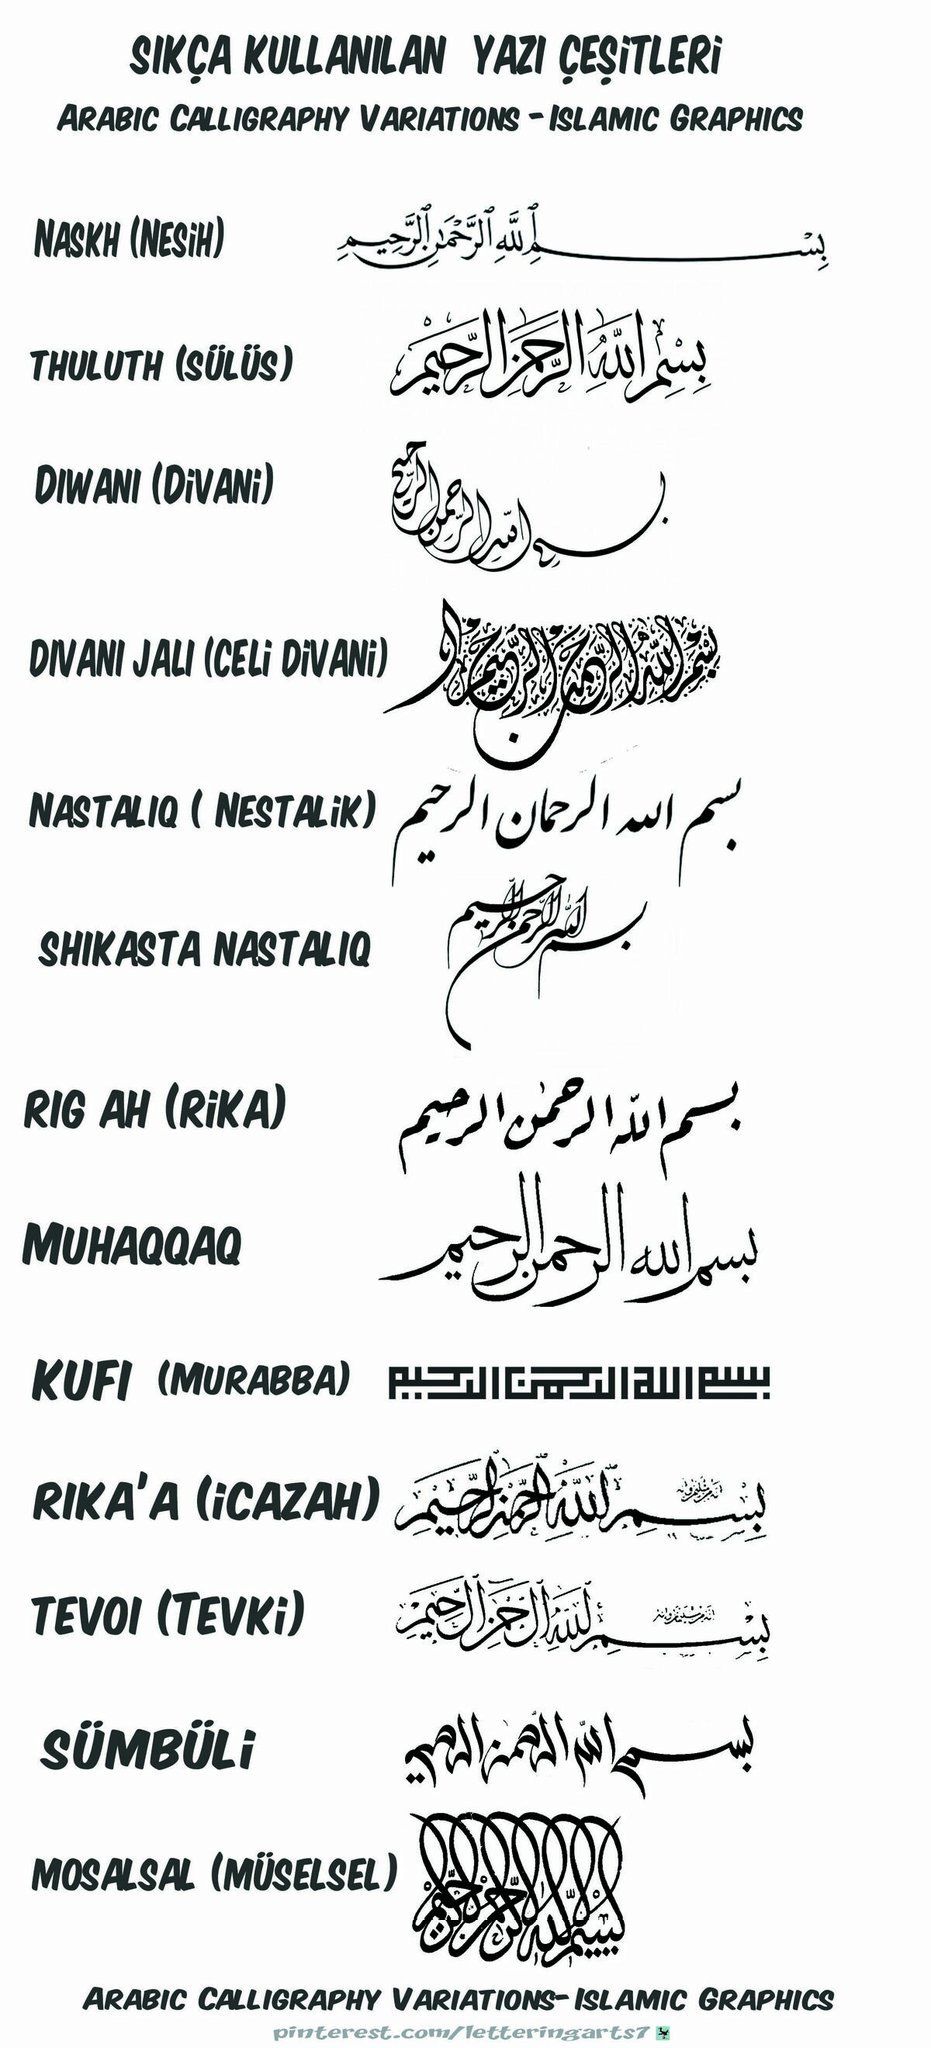 SIKÇA KULLANILAN YAZI ÇEŞİTLERİ
ARABIC CALLIGRAPHY VARIATIONS - ISLAMIC GRAPHICS
NASKH (NESİH) بِسْـــــمِ ٱللَّهِ ٱلرَّحْمَٰنِ ٱلرَّحِيمِ
THULUTH (SÜLÜS) بِسْمِ اللَّهِ الرَّحْمَنِ الرَّحِيمِ
DIWANI (DİVANİ) بسم الله الرحمن الرحيم
DIVANI JALI (CELİ DİVANİ) بسم الله الرحمن الرحيم
NASTALIQ ( NESTALİK) بسم الله الرحمان الرحیم
SHIKASTA NASTALIQ بسم الله الرحمن الرحیم
RIG AH (RİKA) بسم اللّٰه الرحمٰن الرحيم
MUHAQQAQ بسم الله الرحمن الرحيم
KUFI (MURABBA) بسم الله الرحمن الرحيم
RIKA'A (İCAZAH) بِسْــمِ اللَّهِ الرَّحْمَنِ الرَّحِيمِ
TEVOI (TEVKİ) بِسْــمِ اللَّهِ الرَّحْمَنِ الرَّحِيمِ
SÜMBÜLİ بسم الله الرحمن الرحيم
MOSALSAL (MÜSELSEL) بسم الله الرحمن الرحيم
ARABIC CALLIGRAPHY VARIATIONS- ISLAMIC GRAPHICS
pinterest.com/letteringarts7